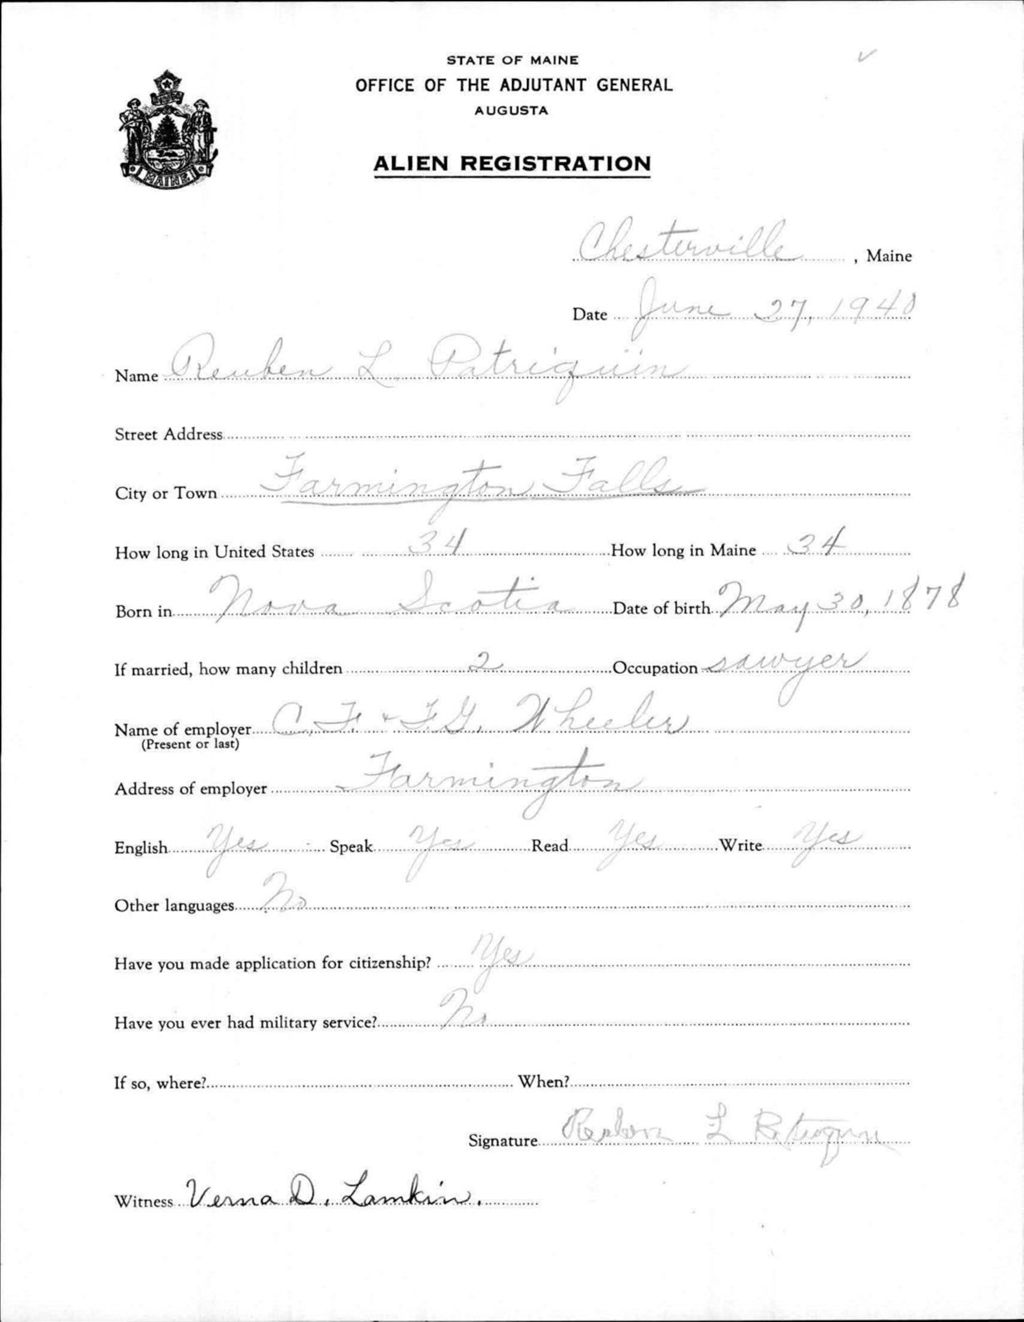 STATE OF MAINE
OFFICE OF THE ADJUTANT GENERAL
AUGUSTA
MAINE
ALIEN REGISTRATION
Chesterville, Maine
Date June 27, 1940
Name Reuben L. Patriquin
Street Address
City or Town Farmington Falls
How long in United States 34 How long in Maine 34
Born in Nova Scotia Date of birth May 30, 1878
If married, how many children 2 Occupation sawyer
Name of employer C.F. & F.G. Wheeler
(Present or last)
Address of employer Farmington
English Yes Speak Yes Read Yes Write Yes
Other languages No
Have you made application for citizenship? Yes
Have you ever had military service? No
If so, where? When?
Signature Reuben L Patriquin
Witness Verna D. Lamkin.